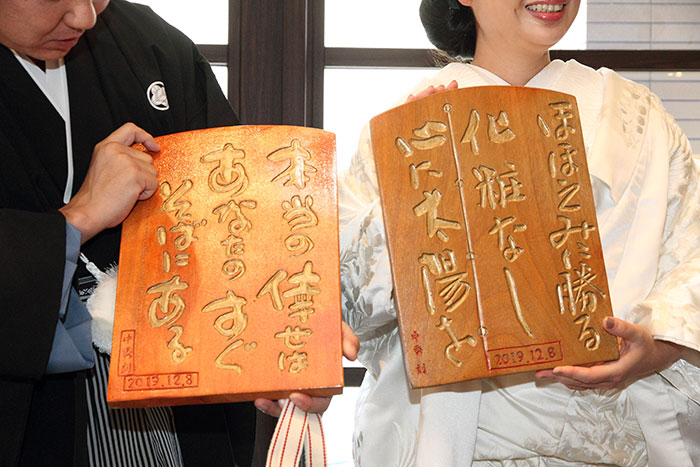 本当の倖せは
あなたのすぐ
そばにある
2019.12.8
ほほえみに勝る
化粧なし
心に太陽を
2019.12.8